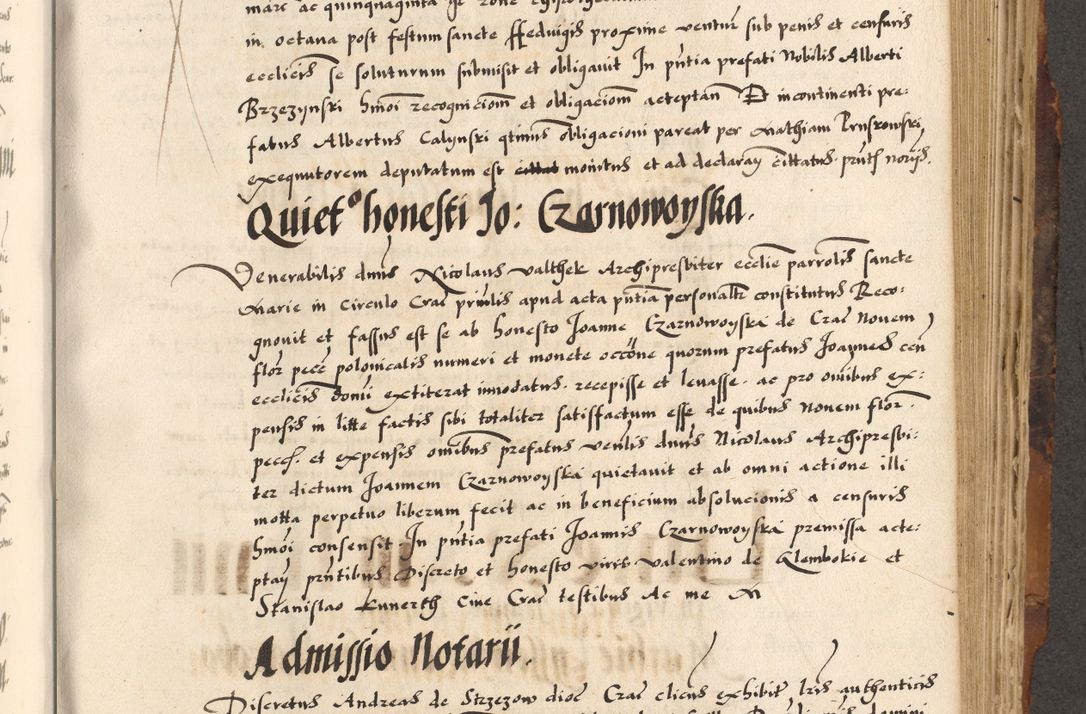 marc ac quinquaginta
in octava post festum sancte Hedvigis proxime ventur sub penis et censuris
ecclicis se soluturum submisit et obligavit In pntia prefati Nobilis Alberti
Brzezynski hmoi recognicionem et obligacionem acceptan Et incontinenti pre:
fatus Albertus Calynski qtinus obligacioni pareat per Mathiam Prusrowski
exequutorem deputatum est monitus et ad declaran cittatus prntis norijs.
Quiet honesti Jo: Czarnowoyska.
Venerabilis dnus Nicolaus Valthek Archipresbiter ecclie parrolis sancte
Marie in Circulo Crac privilis apud acta pntia personalr constitutus Reco:
gnovit et fassus est se ab honesto Joanne Czarnowoyska de Crac Novem
flor pecc polonicalis numeri et monete occone quorum prefatus Joannes cen
ecclicis domi extiterat innodatus. recepisse et levasse. ac pro omibus ex:
pensis in litte factis sibi totaliter satisfactum esse de quibus Novem flor.
pecc. et expensis omibus prefatus venlis dnus Nicolaus Archipresbi:
ter dictum Joannem Czarnowoyska quietavit et ab omni actione illi
motta perpetuo liberum fecit ac in beneficium absolucionis a censuris
hmoi consensit. In pntia prefati Joannis Czarnowoyska premissa acce:
ptan prntibus Discreto et honesto viris Valentino de Glembokie et
Stanislao Kunerth Cive Crac testibus Ac me M
Admissio Notarii.
Discretus Andreas de Strzezow dioc Crac clicus exhibit lras authenticis